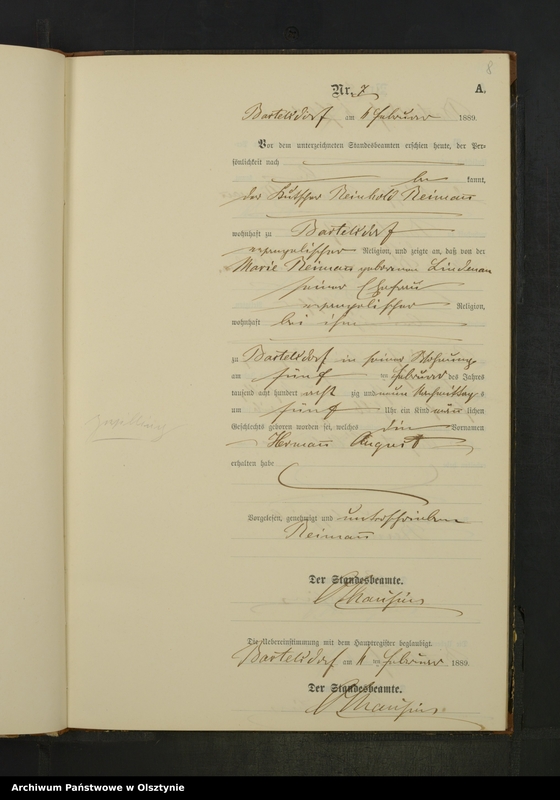 8
Nr. 7
A.
Bartelsdorf am 6 Februar 1889.
Vor dem unterzeichneten Standesbeamten erschien heute, der Per-
sönlichkeit nach
be kannt,
der Kutscher Reinhold Reimann
wohnhaft zu Bartelsdorf
evangelischer Religion, und zeigte an, daß von der
Marie Reimann geborenen Lindenau
seiner Ehefrau
evangelischer Religion,
wohnhaft bei ihm
zu Bartelsdorf in seiner Wohnung
am fünf ten Februar des Jahres
tausend acht hundert acht zig und neun Nachmittag s
um fünf Uhr ein Kind männ lichen
Geschlechts geboren worden sei, welches die Vornamen
Hermann August
erhalten habe
Vorgelesen, genehmigt und unterschrieben
Reimann
Der Standesbeamte.
Die Uebereinstimmung mit dem Hauptregister beglaubigt.
Bartelsdorf am 6 ten Februar 1889.
Der Standesbeamte.
Archiwum Państwowe w Olsztynie